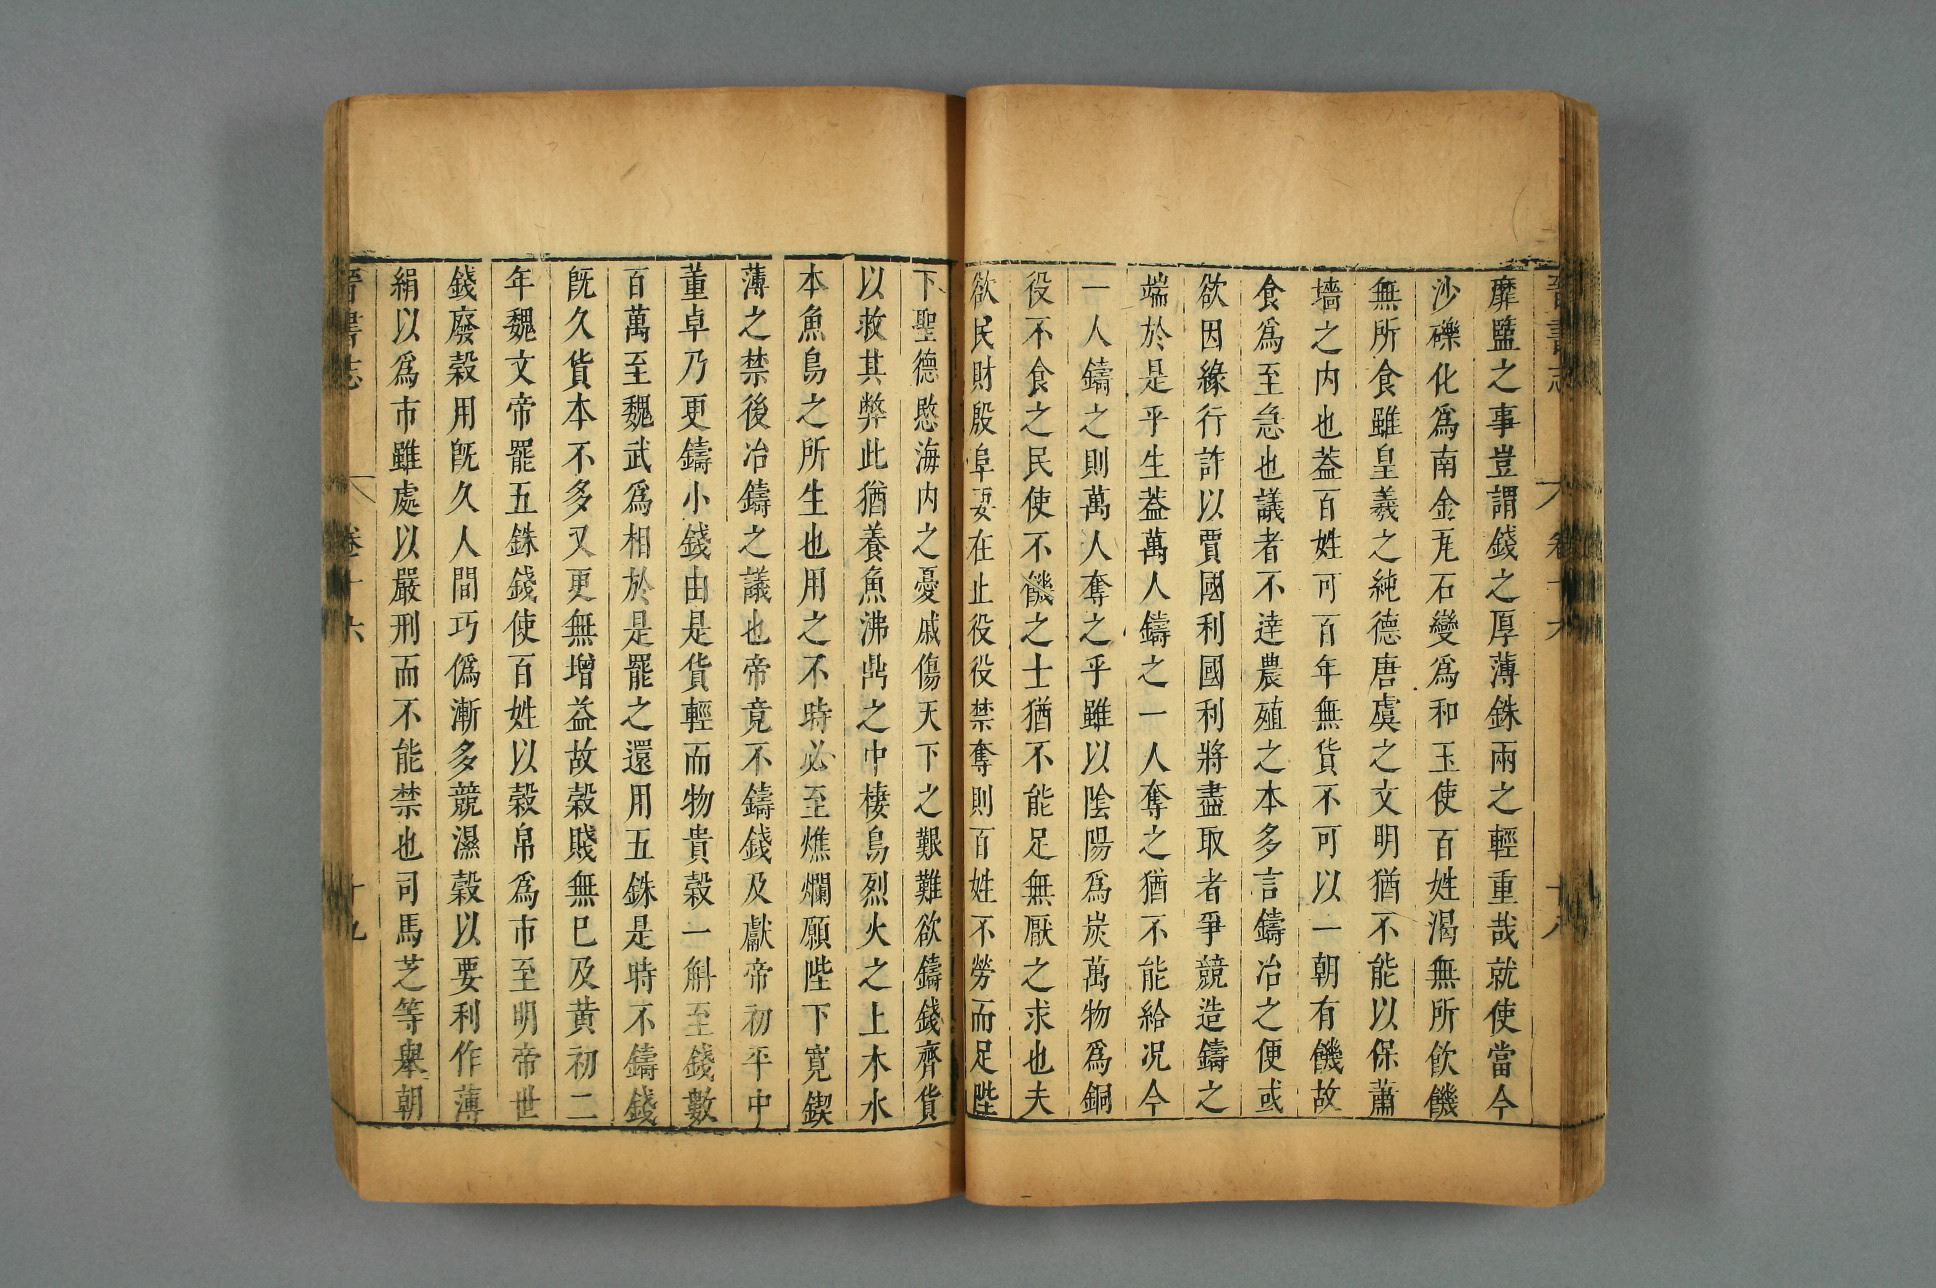 晉書志 卷十六 十八
靡盬之事豈謂錢之厚薄銖兩之輕重哉就使當今
沙礫化爲南金瓦石變爲和玉使百姓渴無所飮饑
無所食雖皇羲之純德唐虞之文明猶不能以保蕭
墻之内也葢百姓可百年無貨不可以一朝有饑故
食爲至急也議者不逹農殖之本多言鑄冶之便或
欲因緣行詐以賈國利國利將盡取者爭競造鑄之
端於是乎生葢萬人鑄之一人奪之猶不能給况今
一人鑄之則萬人奪之乎雖以陰陽爲炭萬物爲銅
役不食之民使不饑之士猶不能足無厭之求也夫
欲民財殷阜要在止役役禁奪則百姓不勞而足陛
下聖德愍海内之憂戚傷天下之艱難欲鑄錢齊貨
以救其弊此猶養魚沸鼎之中棲鳥烈火之上木水
本魚鳥之所生也用之不時必至燋爛願陛下寛鍥
薄之禁後冶鑄之議也帝竟不鑄錢及獻帝初平中
董卓乃更鑄小錢由是貨輕而物貴穀一斛至錢數
百萬至魏武爲相於是罷之還用五銖是時不鑄錢
旣久貨本不多又更無增益故穀賤無已及黄初二
年魏文帝罷五銖錢使百姓以穀帛爲市至明帝世
錢廢穀用旣久人間巧僞漸多競濕穀以要利作薄
絹以爲市雖處以嚴刑而不能禁也司馬芝等舉朝
晉書志 卷十六 十九